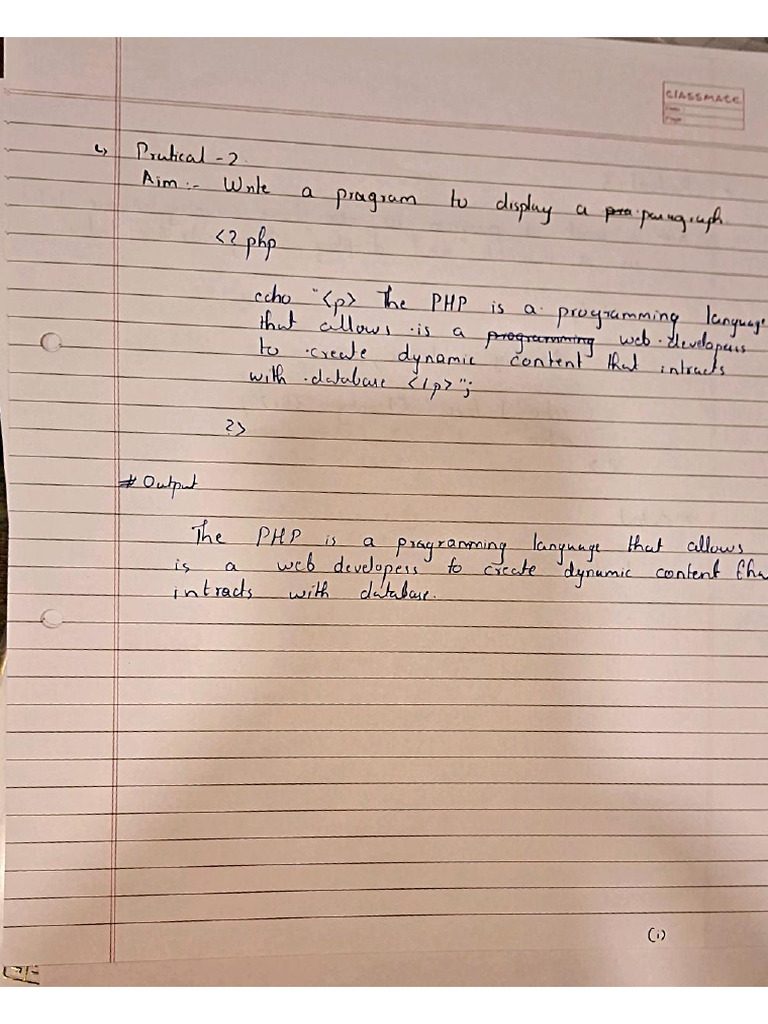 CLASSMATE
Date:
Page:
L) Prutical - 2
Aim :- Write a program to display a pra paragraph
<? php
echo "<p> The PHP is a programming language
that allows is a programming web developers
to create dynamic content that intracts
with database </p>";
?>
# Output
The PHP is a programming language that allows
is a web developers to create dynamic content tha
intracts with database.
(i)